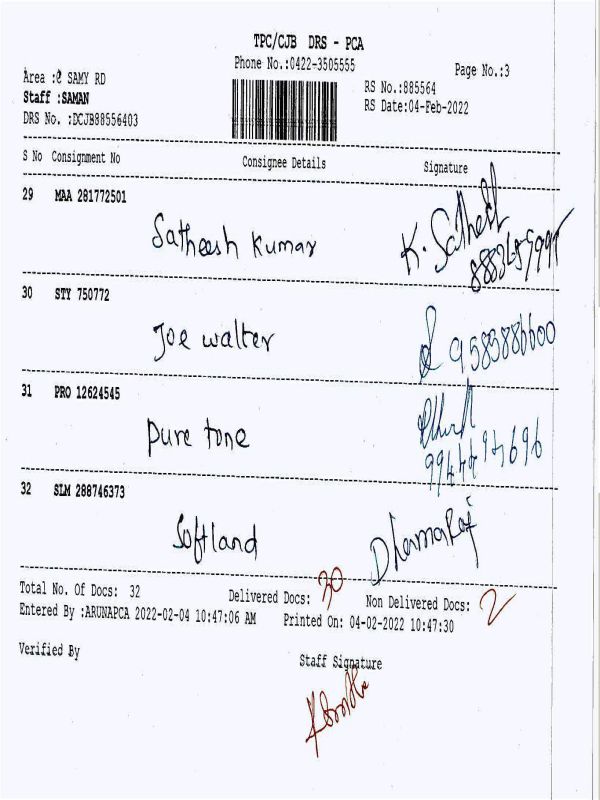 TPC/CJB DRS - PCA
Phone No.:0422-3505555
Page No.:3
Area : SAMY RD
RS No.:885564
Staff :SAMAN
RS Date:04-Feb-2022
DRS No. :DCJB88556403
S No Consignment No Consignee Details Signature
29 MAA 281772501
Satheesh Kumar K. Sathesh
30 STY 750772
Joe walter 9585886600
31 PRO 12624545
Pure tone
32 SLM 288746373
Softland Dharmaraj
Total No. Of Docs: 32 Delivered Docs: 30 Non Delivered Docs: 2
Entered By :ARUNAPCA 2022-02-04 10:47:06 AM Printed On: 04-02-2022 10:47:30
Verified By Staff Signature